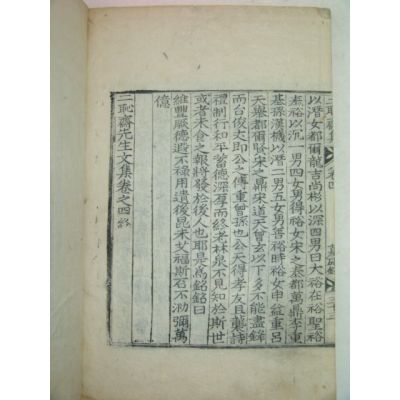 二恥齋集 卷四
以潛女都爾龍吉尚彬以深四男曰大裕在裕聖裕
泰裕以沉一男四女男得裕女宋之泰都萬鼎李重
基孫漢機以潛二男五女男善裕時裕女申益重呂
天擧都爾發宋之鼎宋道天曾玄以下多不能盡錄
而台俊丈卽公之傳重曾孫也公天得孝友且蘷詩
禮制行和平蓄德深厚而終老林泉不見知於斯世
或者未食之報將發於後人也耶是爲銘銘曰
維豐厥德遐不祿用遺後昆朱艾福斯石不泐彌萬
億
二恥齋先生文集卷之四終